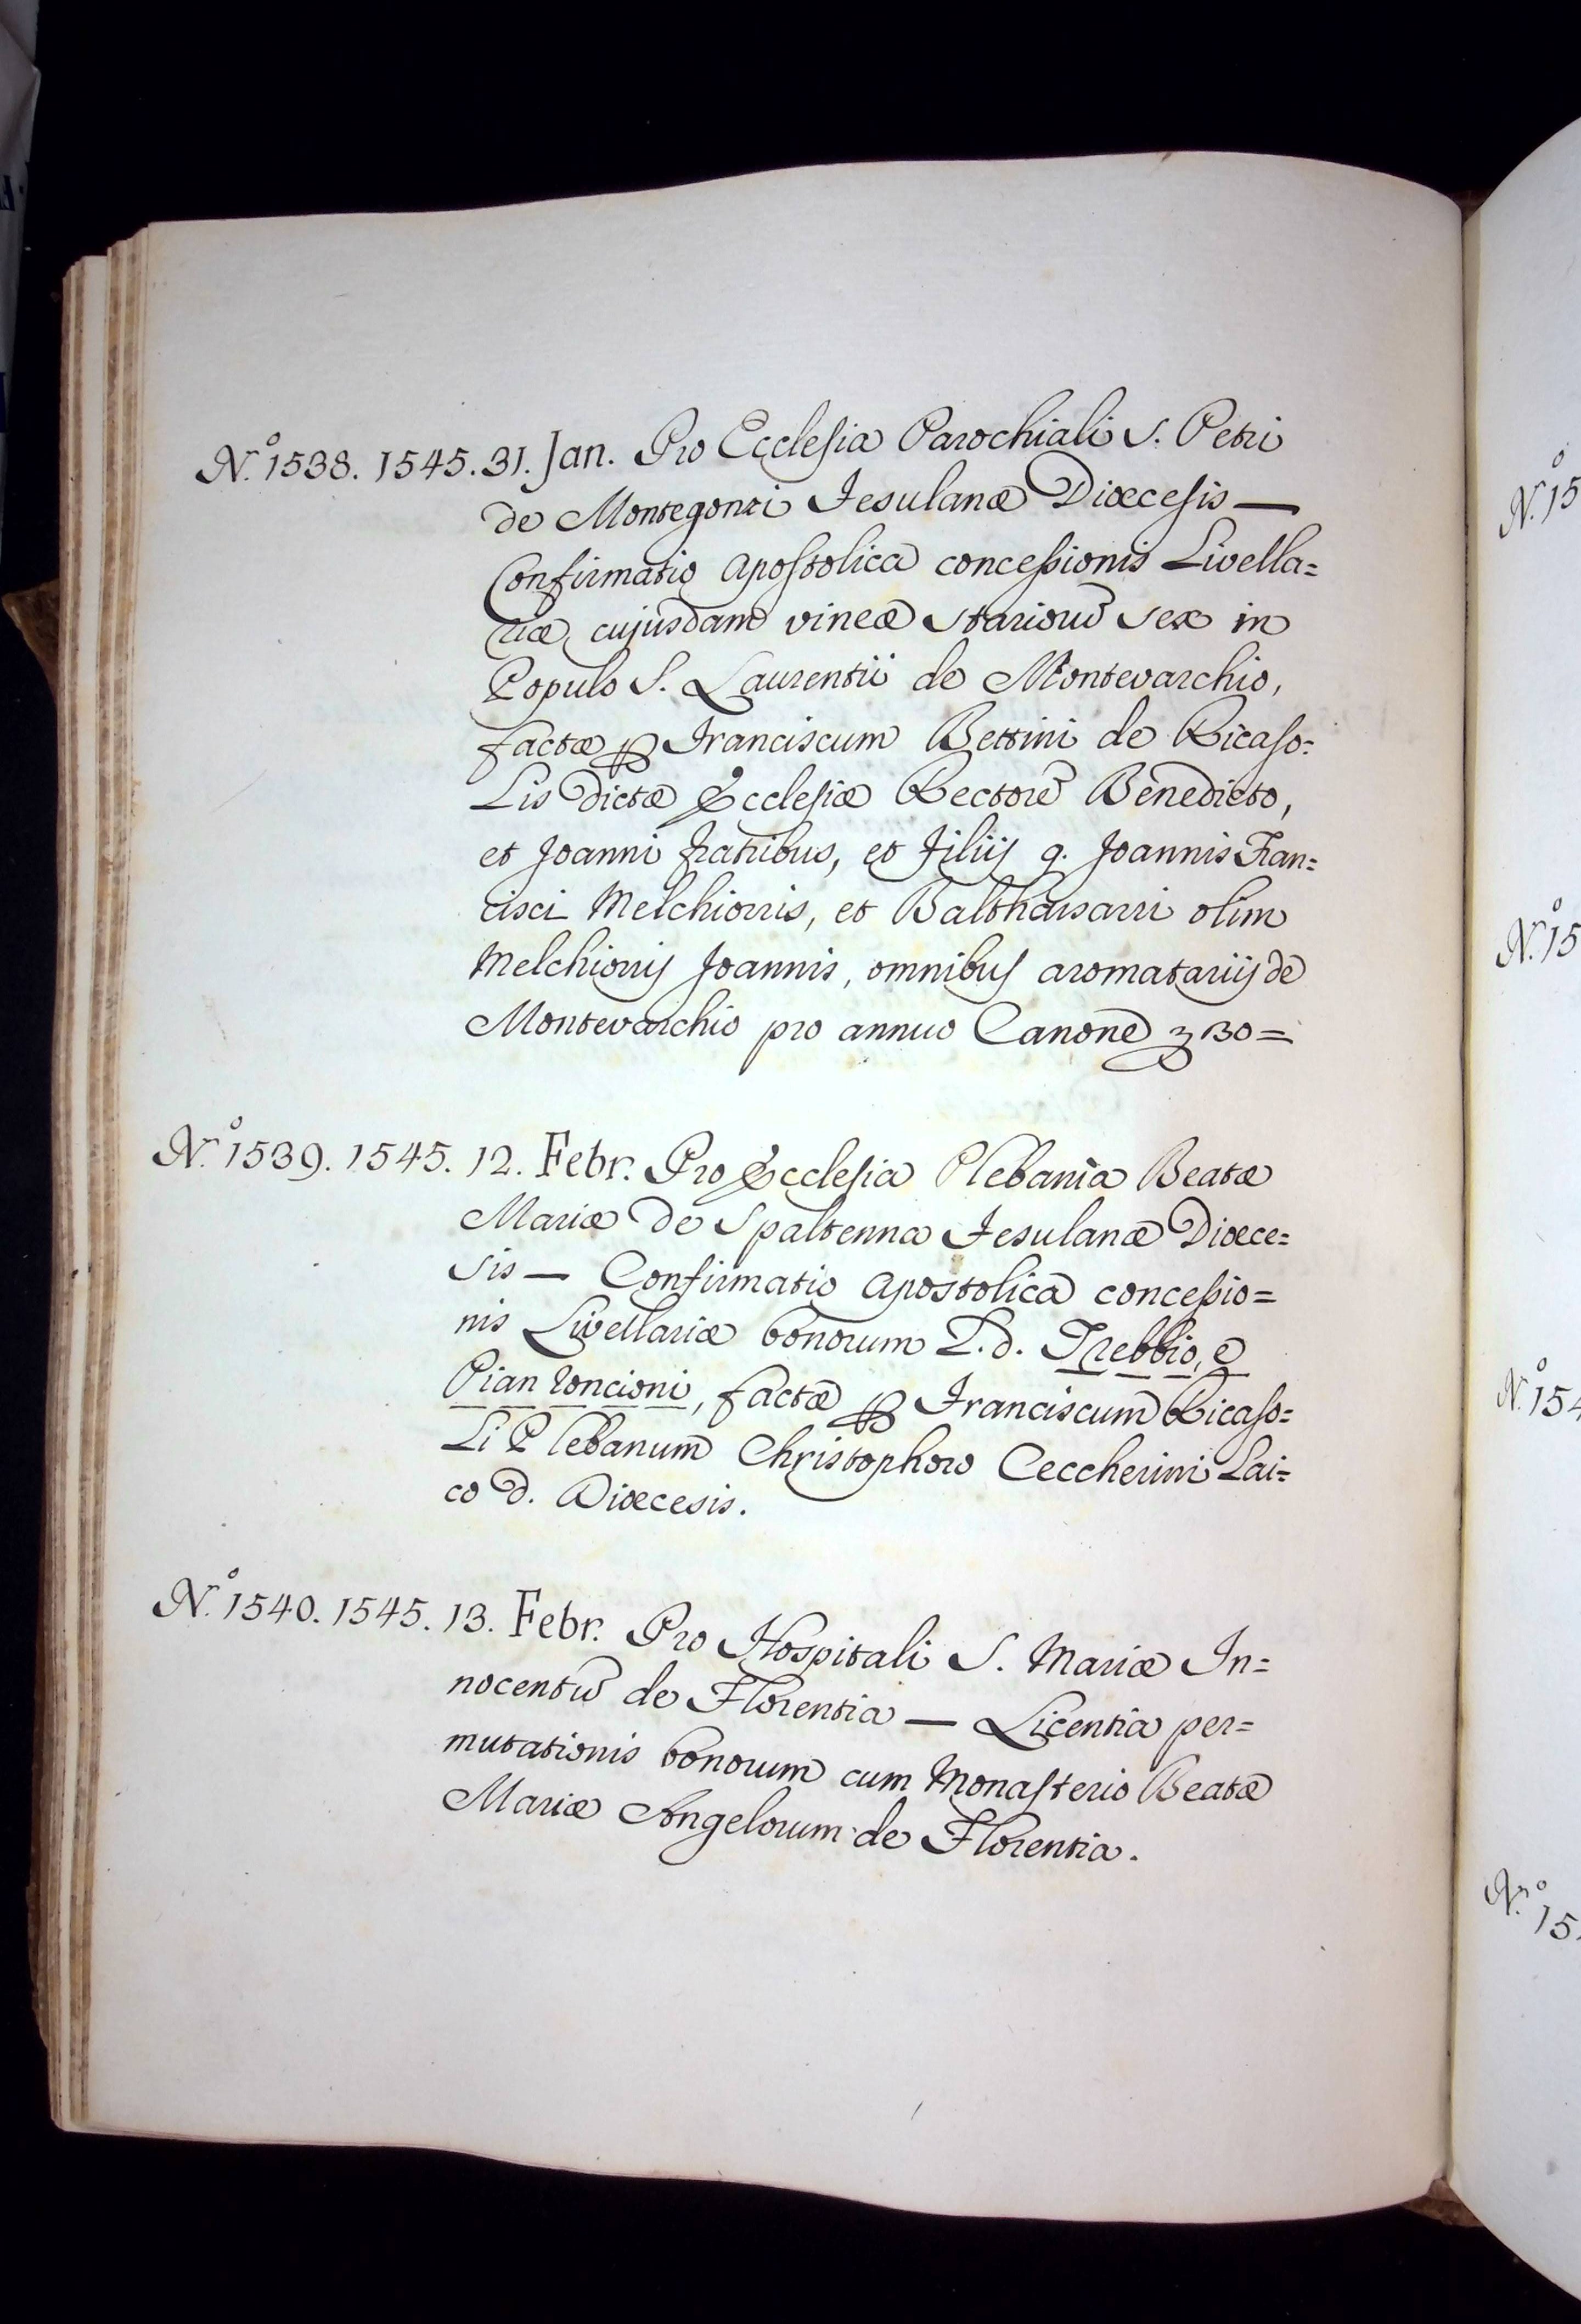 N.º 1538. 1545. 31. Jan. Pro Ecclesia Parochiali S. Petri
de Montegonzi Fesulanæ Diœcesis —
Confirmatio Apostolica concessionis Livella=
riæ cujusdam vineæ Starioru̅ sex in
Populo S. Laurentii de Montevarchio,
factæ ꝑ Franciscum Bettini de Ricaso=
Lis dictæ Ecclesiæ Rectore̅ Benedicto,
et Joanni fratribus, et Filiis q. Joannis Fran=
cisci Melchiorris, et Balthassarri olim
Melchiorris Joannis, omnibus aromatariis de
Montevarchio pro annuo Canone 30=
N.º 1539. 1545. 12. Febr. Pro Ecclesia Plebania Beatæ
Mariæ de Spaltenna Fesulanæ Diœce=
sis — Confirmatio Apostolica concessio=
nis Livellariæ bonorum L.d. Trebbio, e
Pian roncioni, factæ ꝑ Franciscum Ricaso=
Li Plebanum Christophoro Ceccherini Lai=
co d. Diœcesis.
N.º 1540. 1545. 13. Febr. Pro Hospitali S. Mariæ In=
nocentiu̅ de Florentia — Licentia per=
mutationis bonorum cum Monasterio Beatæ
Mariæ Angelorum de Florentia.
N.º 15
N.º 15
N.º 154
N.º 15